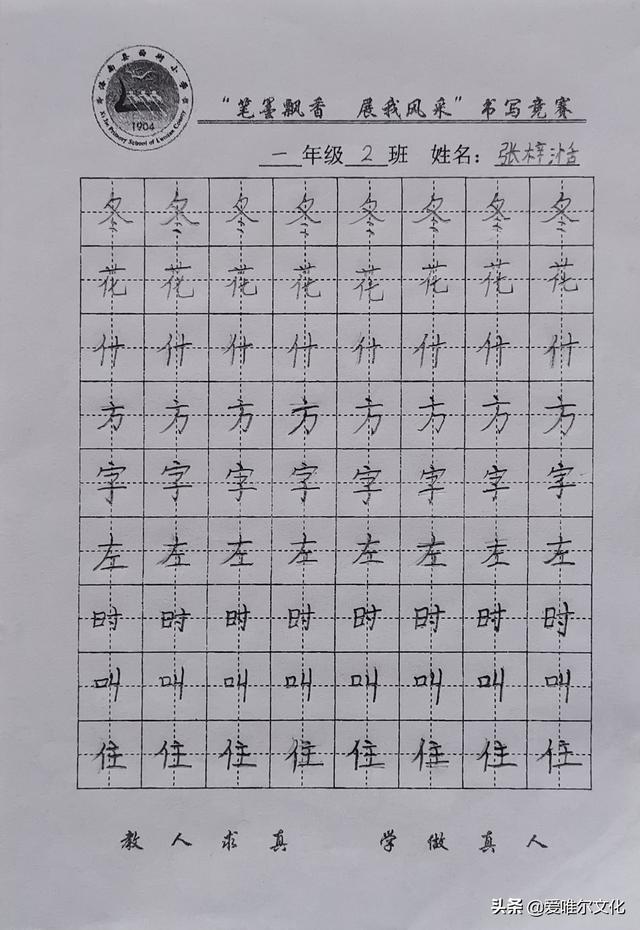 1904
“笔墨飘香 展我风采”书写竞赛
一 年级 2 班 姓名：张梓湉
冬 冬 冬 冬 冬 冬 冬 冬
花 花 花 花 花 花 花 花
什 什 什 什 什 什 什 什
方 方 方 方 方 方 方 方
字 字 字 字 字 字 字 字
左 左 左 左 左 左 左 左
时 时 时 时 时 时 时 时
叫 叫 叫 叫 叫 叫 叫 叫
住 住 住 住 住 住 住 住
教人求真 学做真人
头条 @爱唯尔文化